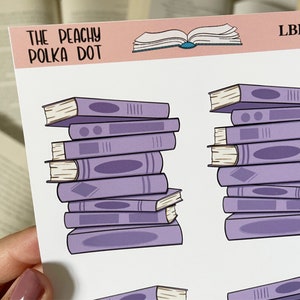 THE PEACHY
POLKA DOT